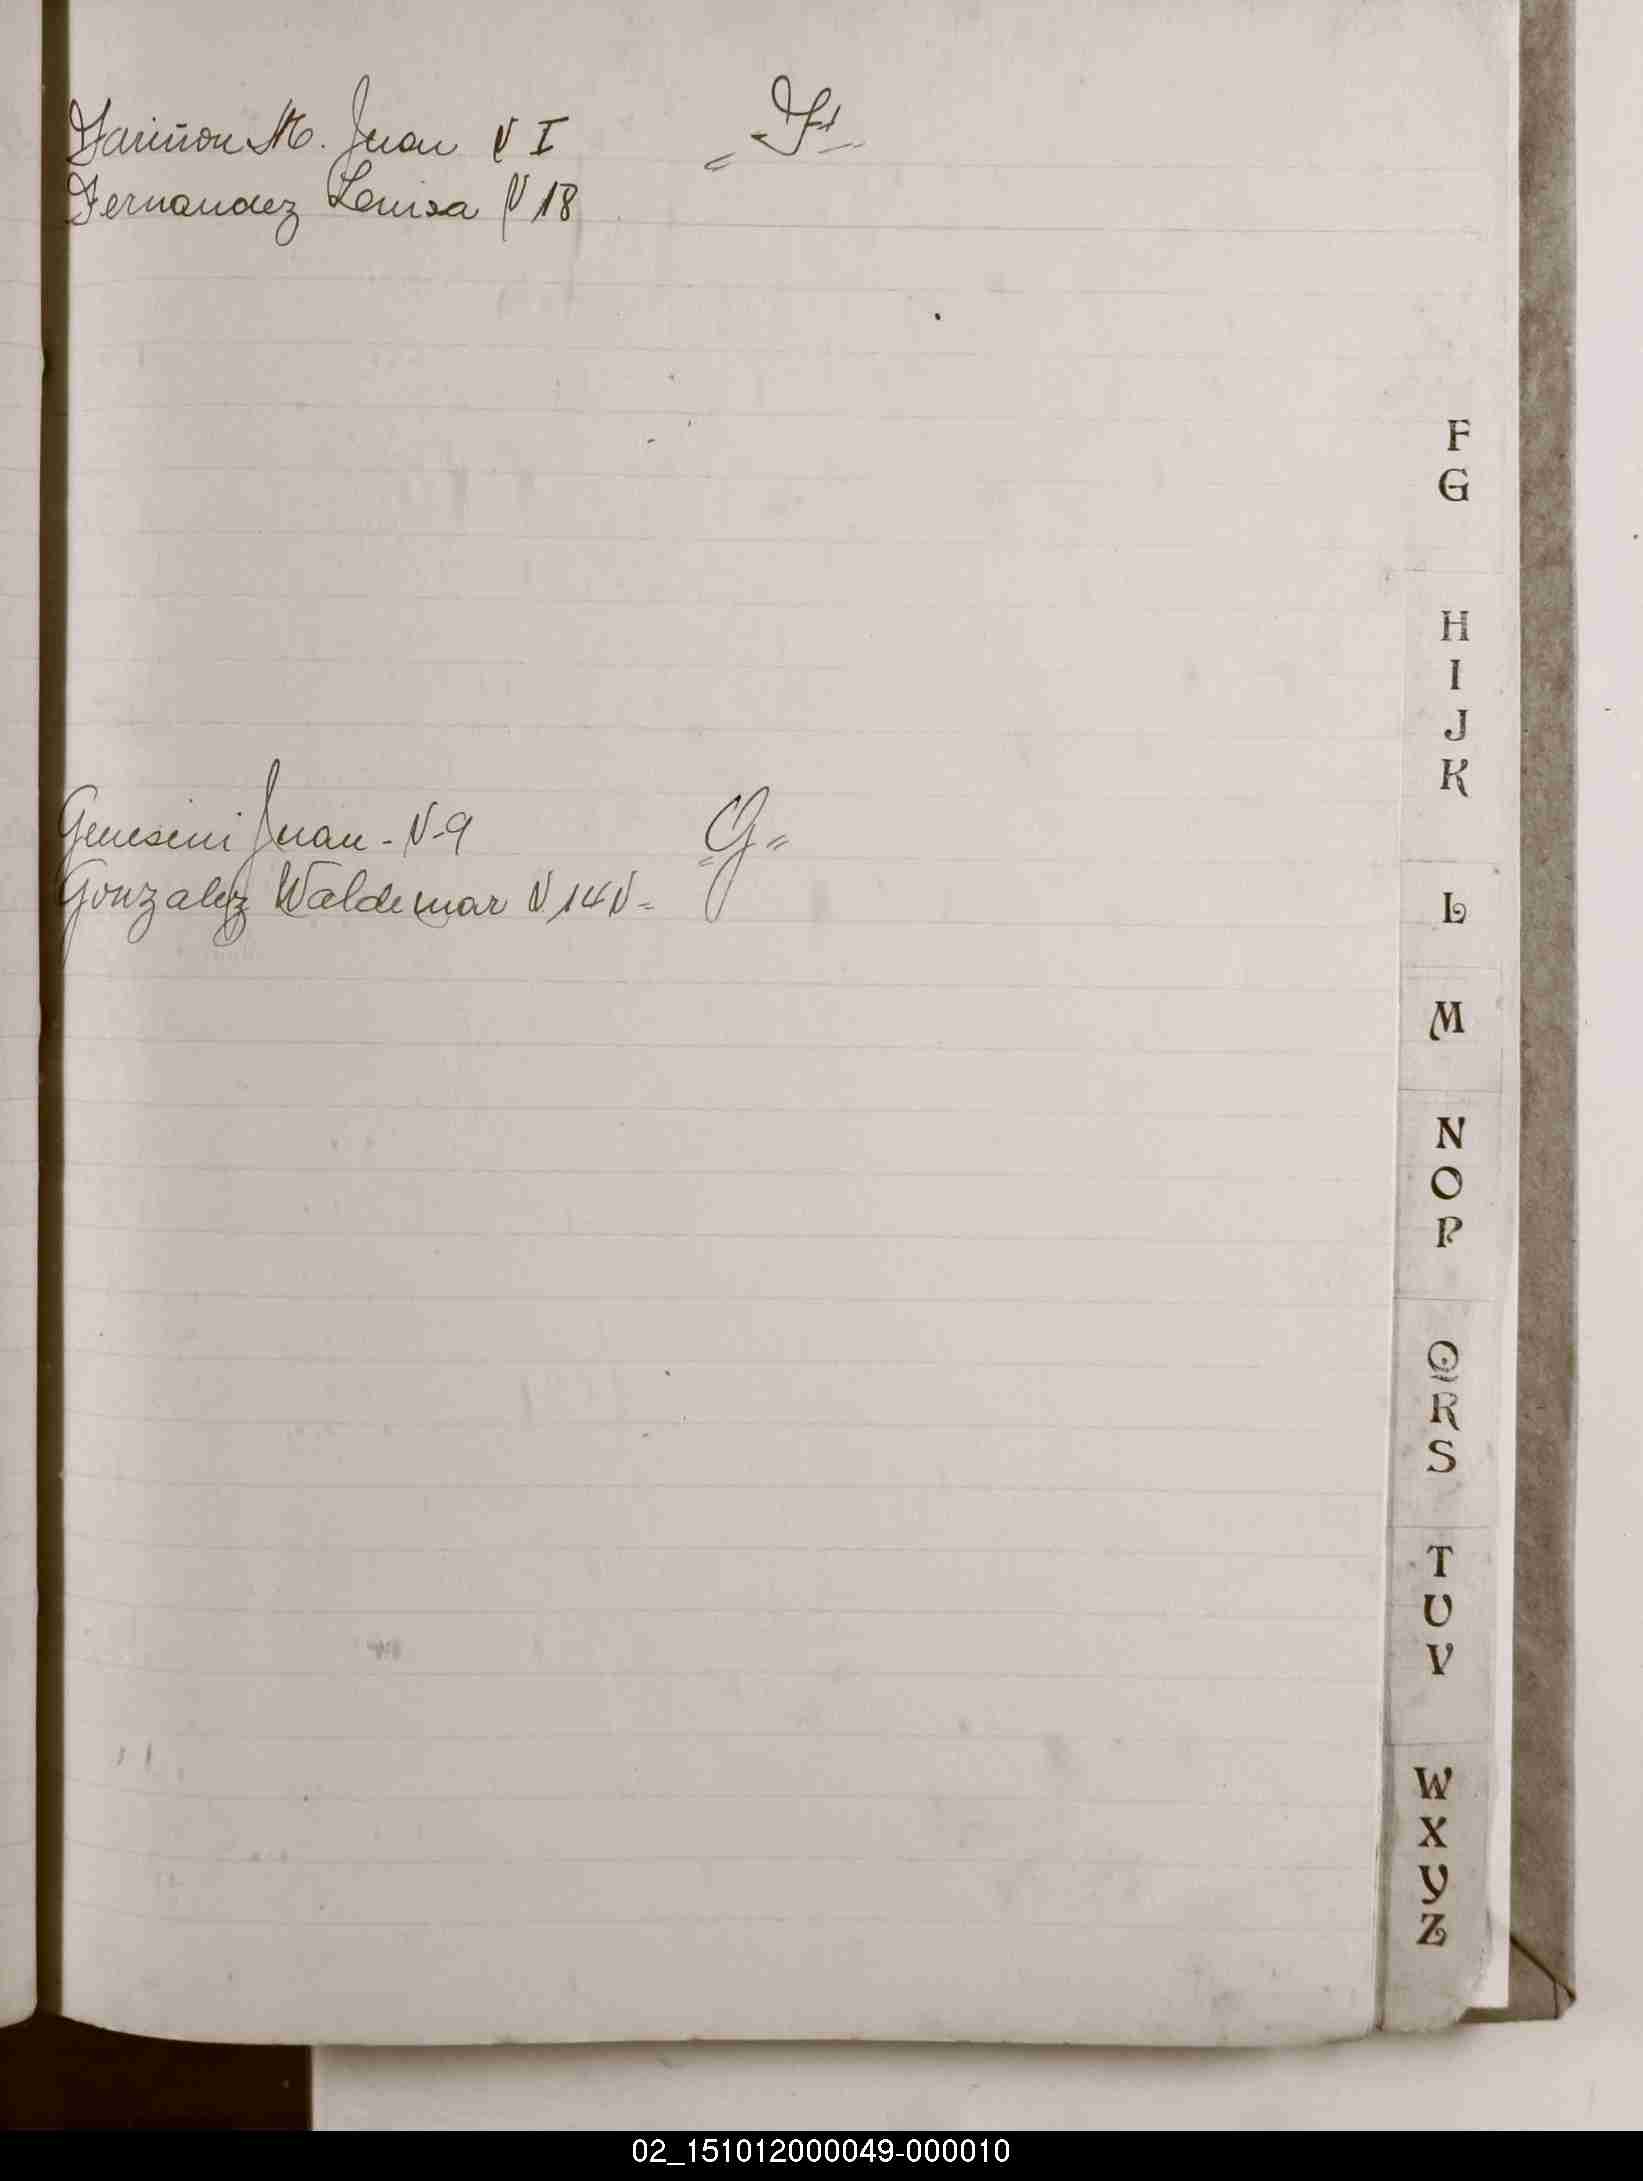 = F =
Fariñon M. Juan N I
Fernandez Louisa N 18
F
G
H
I
J
K
Genesini Juan - N-9
= G =
Gonzalez Waldemar N 14 N=
L
M
N
O
P
Q
R
S
T
U
V
W
X
Y
Z
02_151012000049-000010